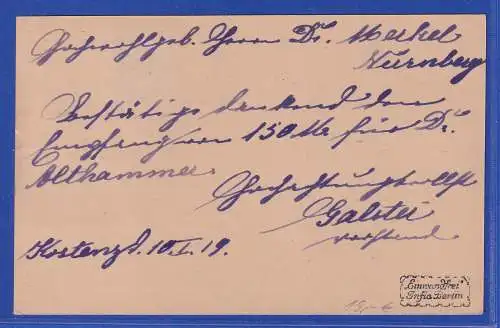 Hochwohlgeb. Herrn Dr. Merkel
Nürnberg
Bestätige dankend den
Empfang von 150 M für Dr.
Althammer.
Hochachtungsvollst
Galster
Kostenz d. 10.I.19.
Einwandfrei
Infla Berlin